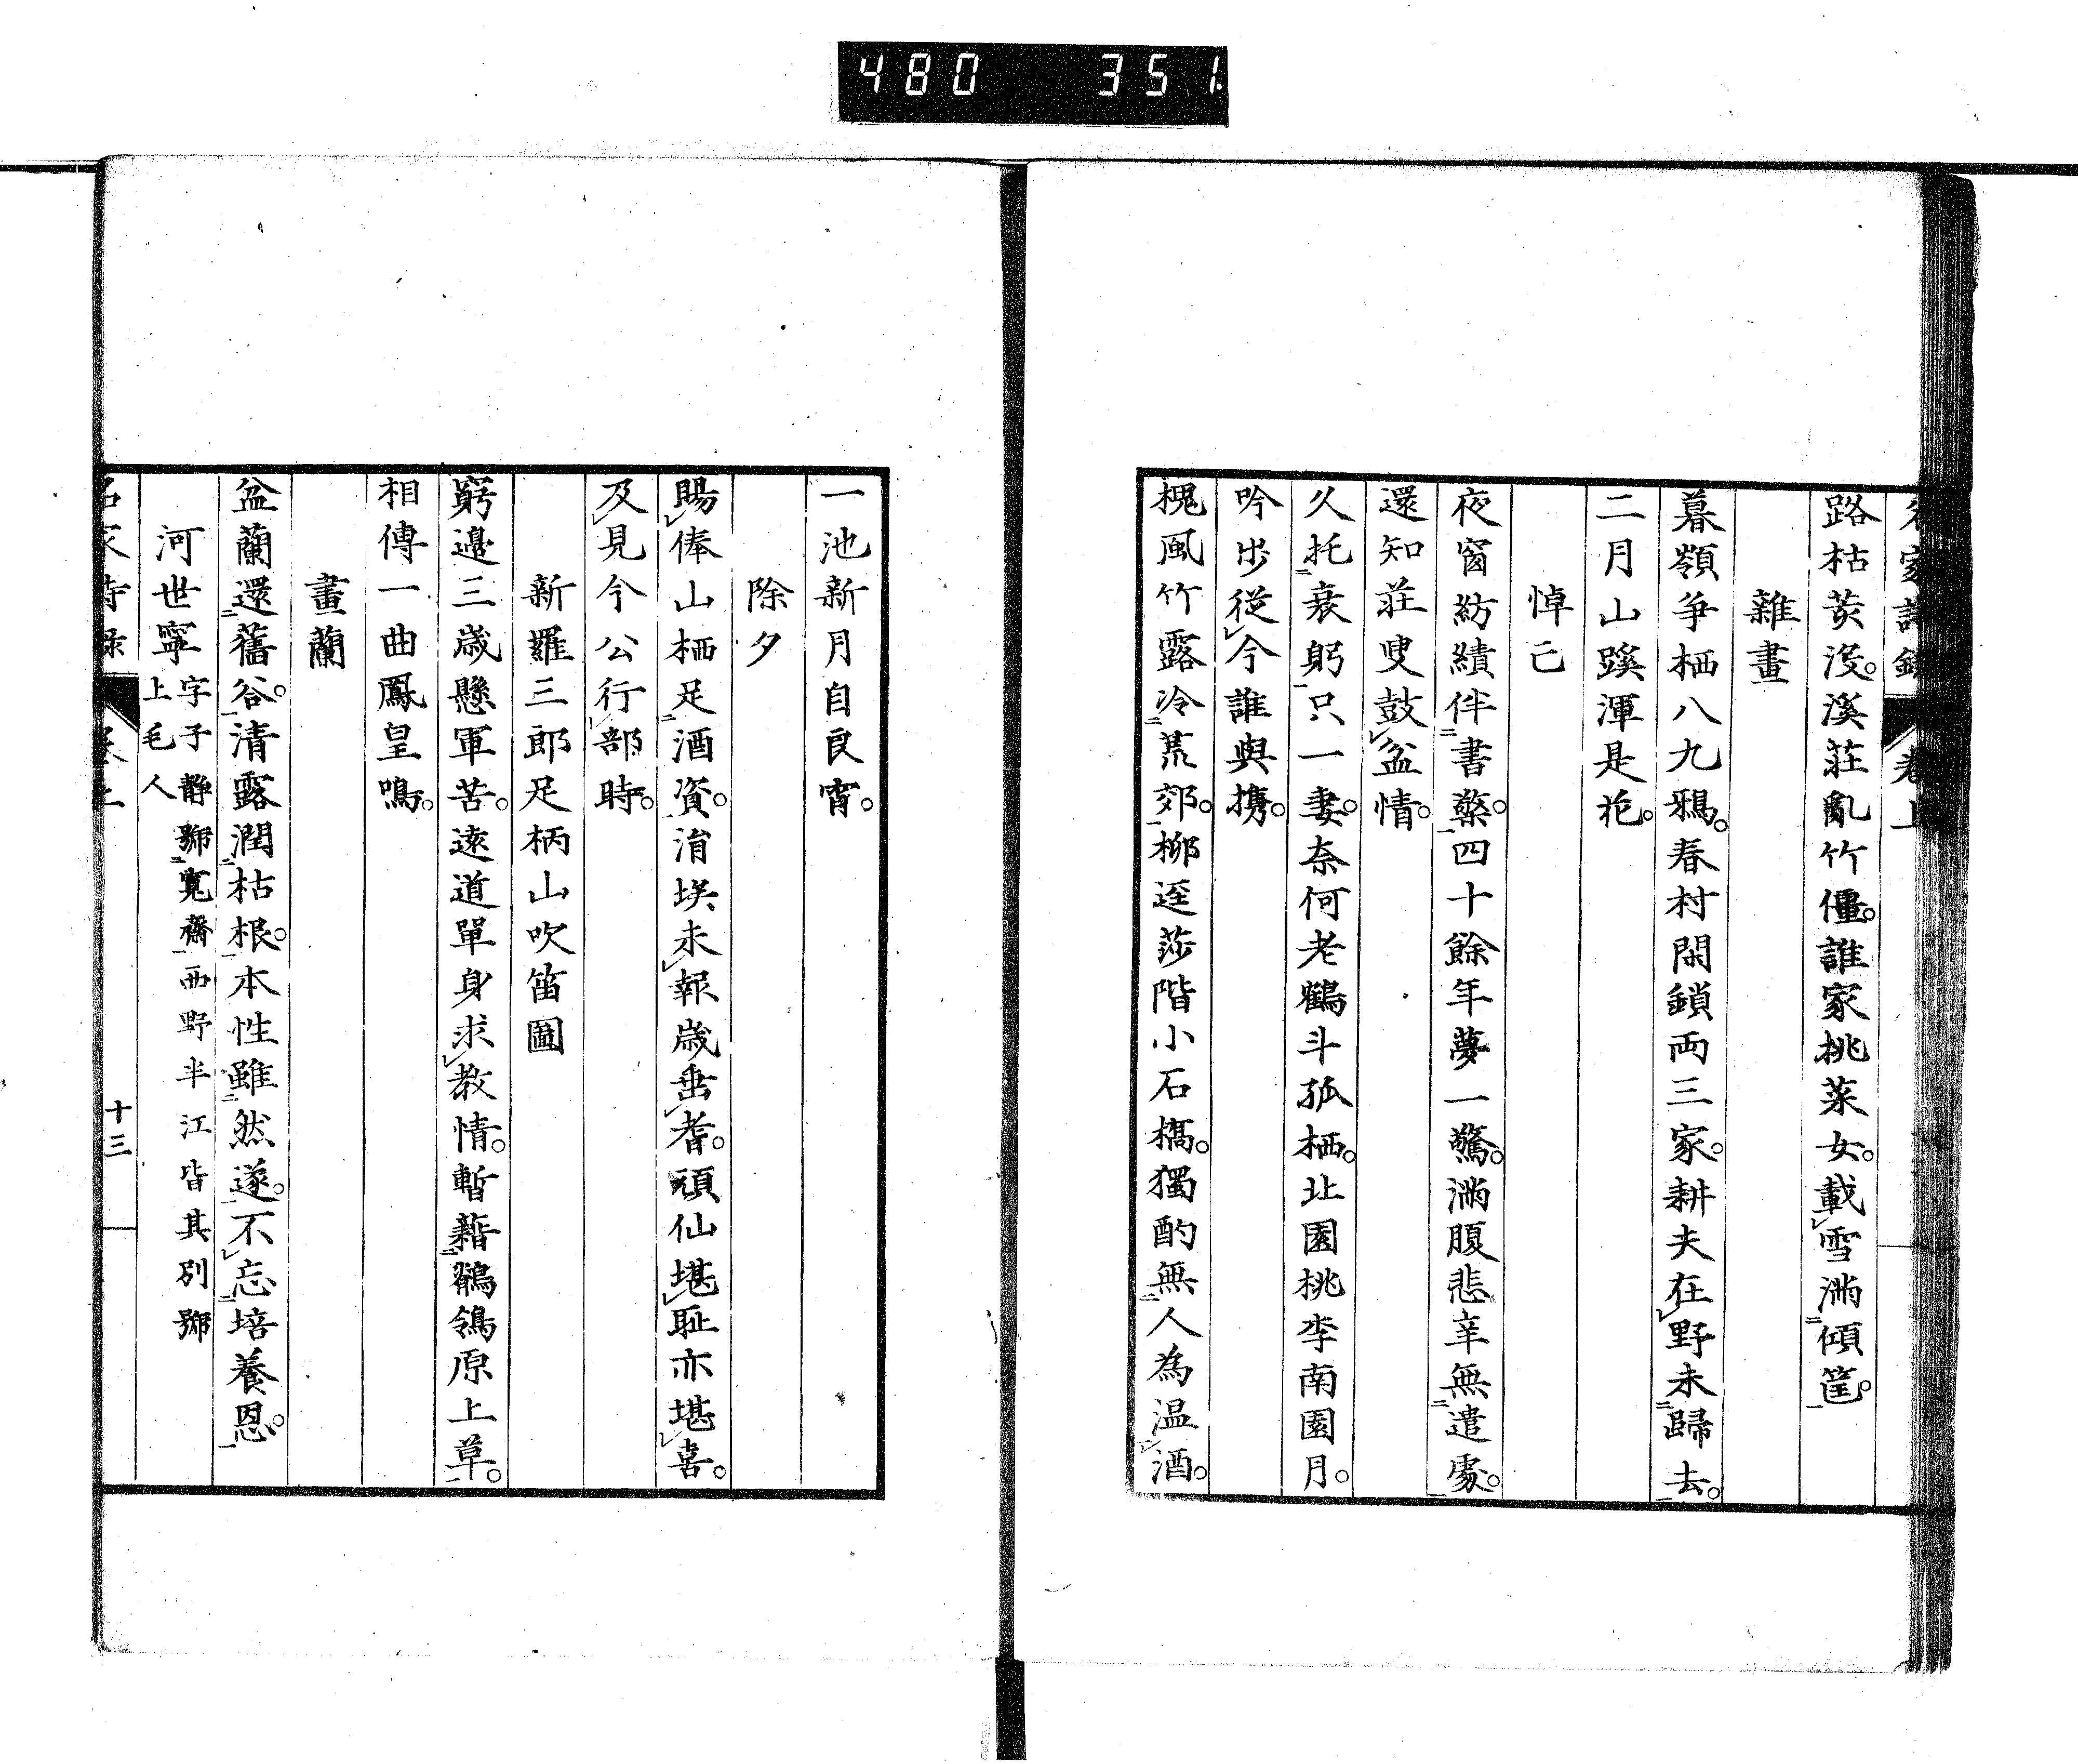 480 351.
名家詩録 卷上
路枯荄没。溪莊亂竹僵。誰家挑菜女。載雪滿傾筐。
雜畫
暮嶺爭栖八九鴉。春村閑鎖両三家。耕夫在野未歸去。
二月山蹊渾是花。
悼亡
夜窗紡績伴書檠。四十餘年夢一驚。滿腹悲辛無遣處。
還知莊叟鼓盆情。
久托衰躬只一妻。奈何老鶴斗孤栖。北園桃李南園月。
吟歩從今誰與携。
槐風竹露冷荒郊。柳逕莎階小石橋。獨酌無人為温酒。
一池新月自良宵。
除夕
賜俸山栖足酒資。涓埃未報歳垂耆。頑仙堪耻亦堪喜。
及見今公行部時。
新羅三郎足柄山吹笛圖
窮邊三歳懸軍苦。遠道單身求教情。暫藉鶺鴒原上草。
相傳一曲鳳皇鳴。
畫蘭
盆蘭還舊谷。清露潤枯根。本性雖然遂。不忘培養恩。
河世寧 字子静號寛齋西野半江皆其別號
上毛人
名家詩録 卷上 十三